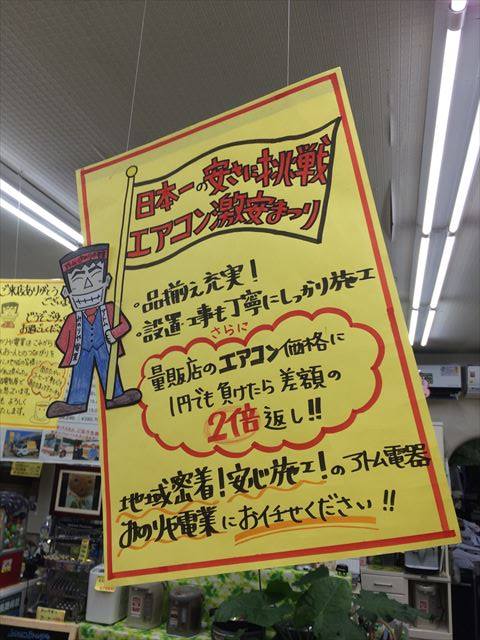 日本一の安さに挑戦
エアコン激安まつり
・品揃え充実！
・設置工事も丁寧にしっかり施工
さらに
量販店のエアコン価格に
1円でも負けたら差額の
2倍返し!!
地域密着！安心施工！のアトム電器
みのりや電業にお任せください!!